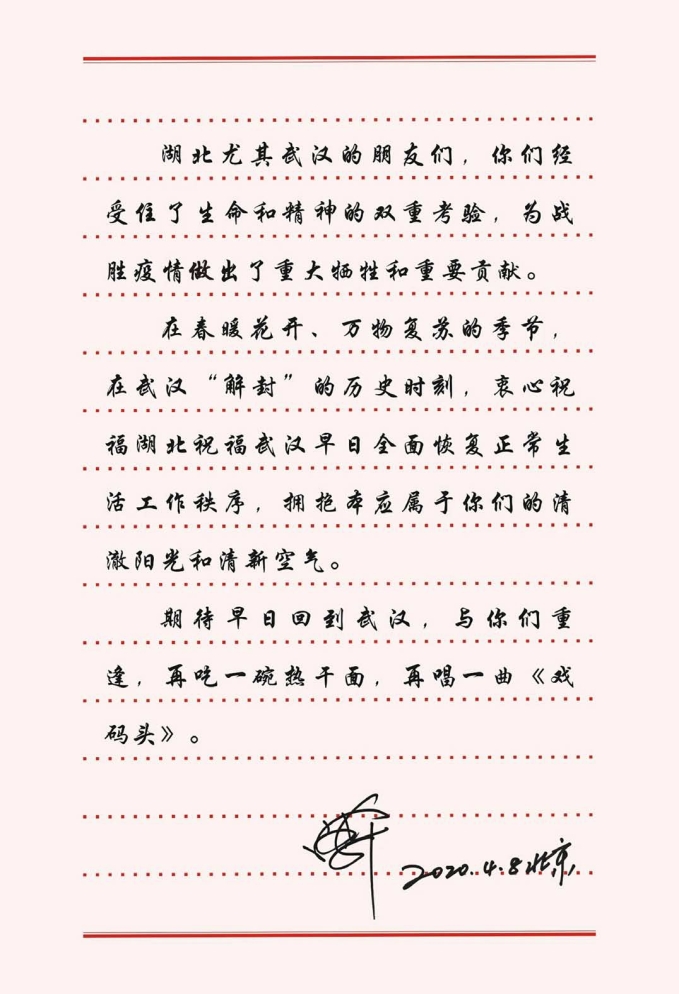 湖北尤其武汉的朋友们，你们经
受住了生命和精神的双重考验，为战
胜疫情做出了重大牺牲和重要贡献。
在春暖花开、万物复苏的季节，
在武汉“解封”的历史时刻，衷心祝
福湖北祝福武汉早日全面恢复正常生
活工作秩序，拥抱本应属于你们的清
澈阳光和清新空气。
期待早日回到武汉，与你们重
逢，再吃一碗热干面，再唱一曲《戏
码头》。
2020.4.8北京